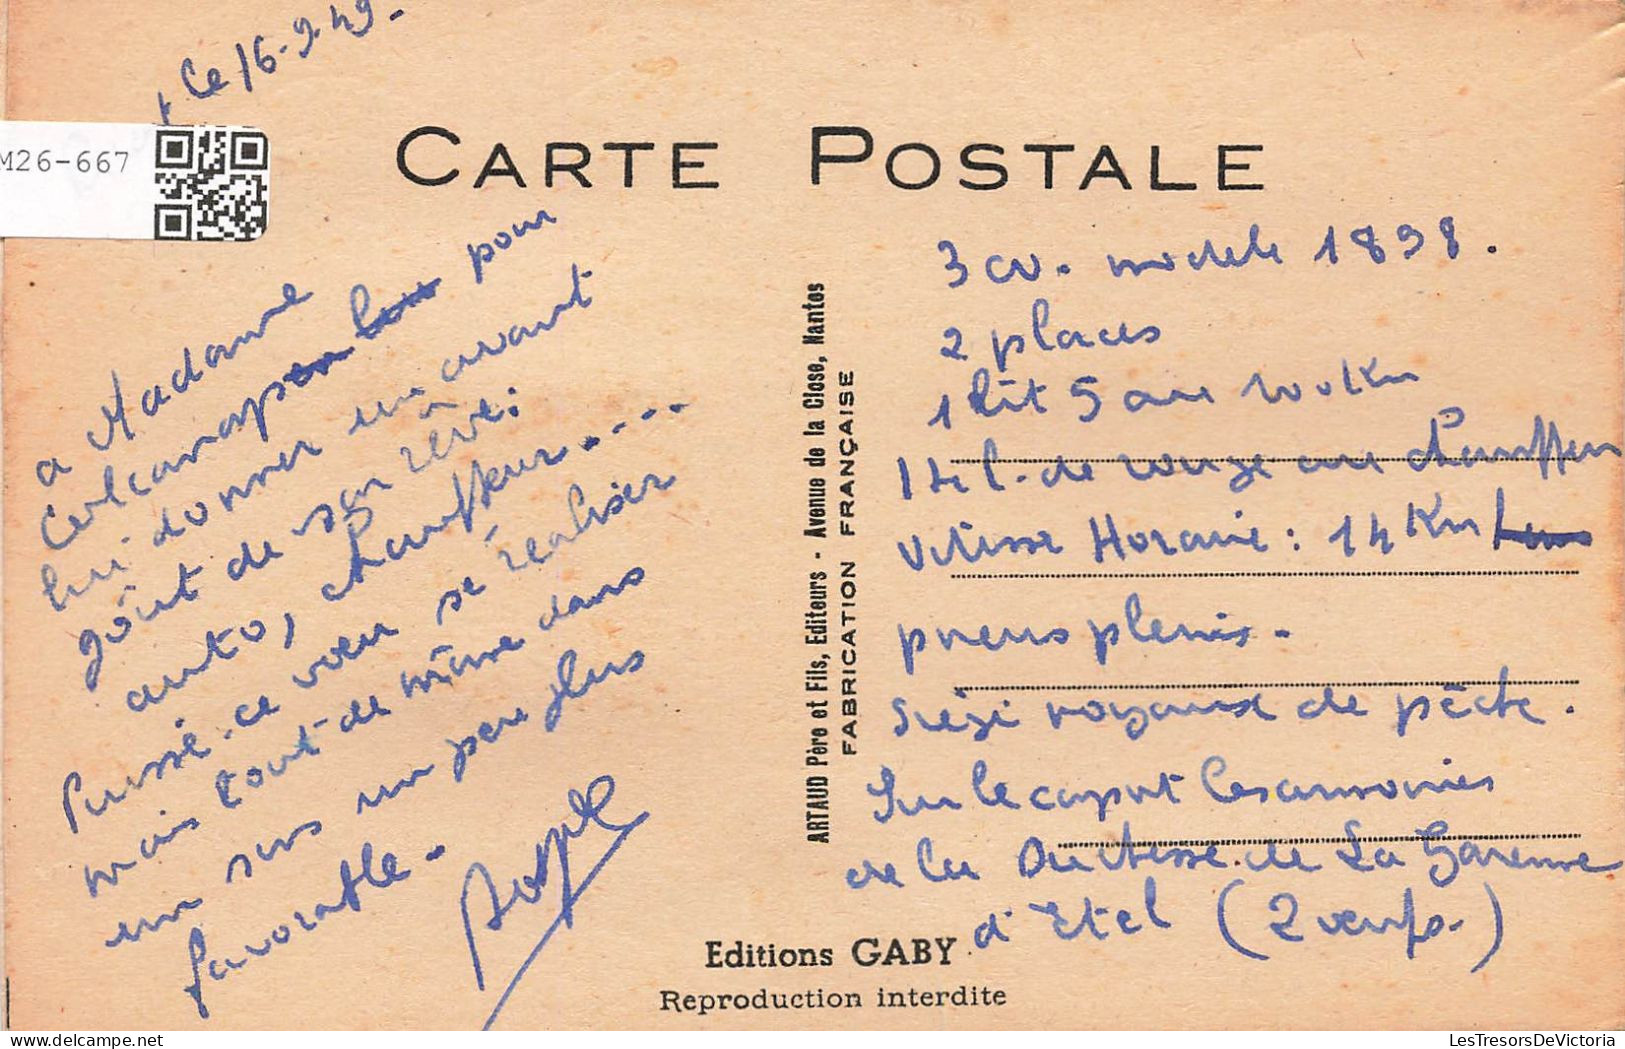 Le 16-9-49-
M26-667
CARTE POSTALE
a Madame
pour
lui donner un avant
goût de son rêve:
auto, chauffeur.....
Puisse-ce voeu se réaliser
mais tout de même dans
un sens un peu plus
favorable-
ARTAUD Père et Fils, Editeurs - Avenue de la Close, Nantes
FABRICATION FRANÇAISE
3 cv. modele 1898.
2 places
1 lit 5 au
14 l. de rouge au chauffeur
Vitesse Horaire: 14 Km
pneus pleins-
Siège noyaux de pêche.
Sur le capot les armoiries
de la Duchesse de La Garenne
d'Etel (2 )
Editions GABY
Reproduction interdite
LesTresorsDeVictoria